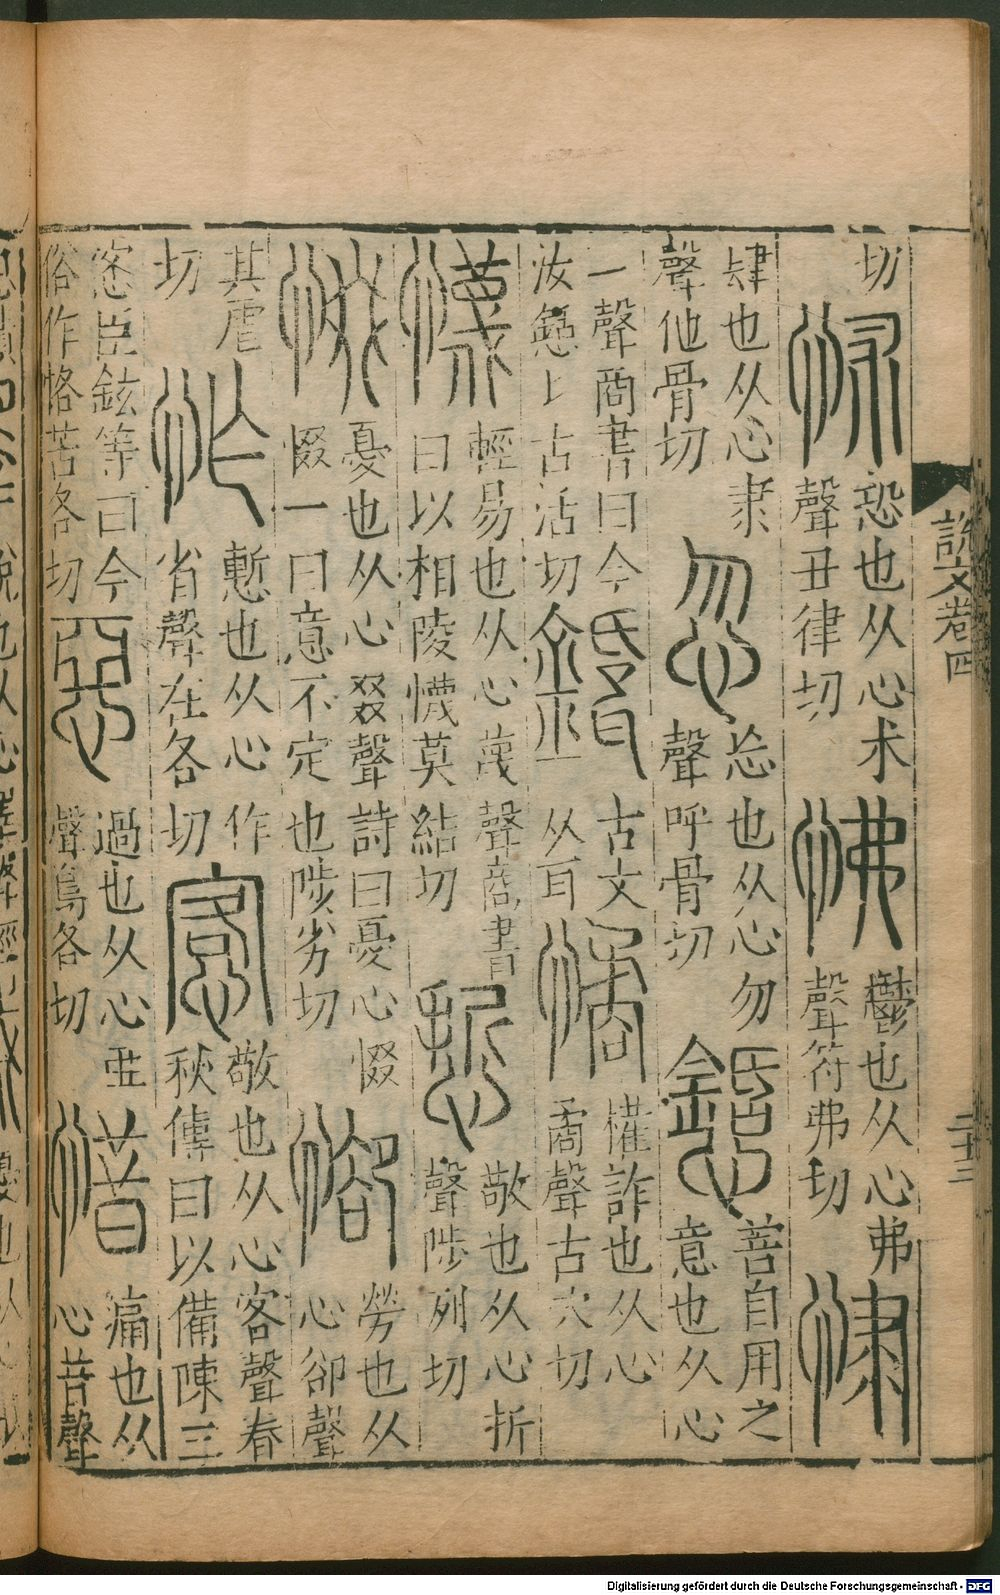 説文卷四
二十三
切
怵
恐也从心术
聲丑律切
怫
鬱也从心弗
聲符弗切
肆也从心隶
聲他骨切
忽
忘也从心勿
聲呼骨切
懖
善自用之
意也从心
一聲商書曰今
汝懖〻古活切
古文
从耳
憰
權詐也从心
矞聲古穴切
懱
輕易也从心蔑聲商書
曰以相陵懱莫結切
悊
敬也从心折
聲陟列切
惙
憂也从心叕聲詩曰憂心惙
惙一曰意不定也陟劣切
勞也从
心卻聲
其虐
切
怍
慙也从心作
省聲在各切
愙
敬也从心客聲春
秋傳曰以備陳三
愙臣鉉等曰今
俗作恪苦各切
惡
過也从心亞
聲烏各切
惜
痛也从
心昔聲
Digitalisierung gefördert durch die Deutsche Forschungsgemeinschaft - DFG